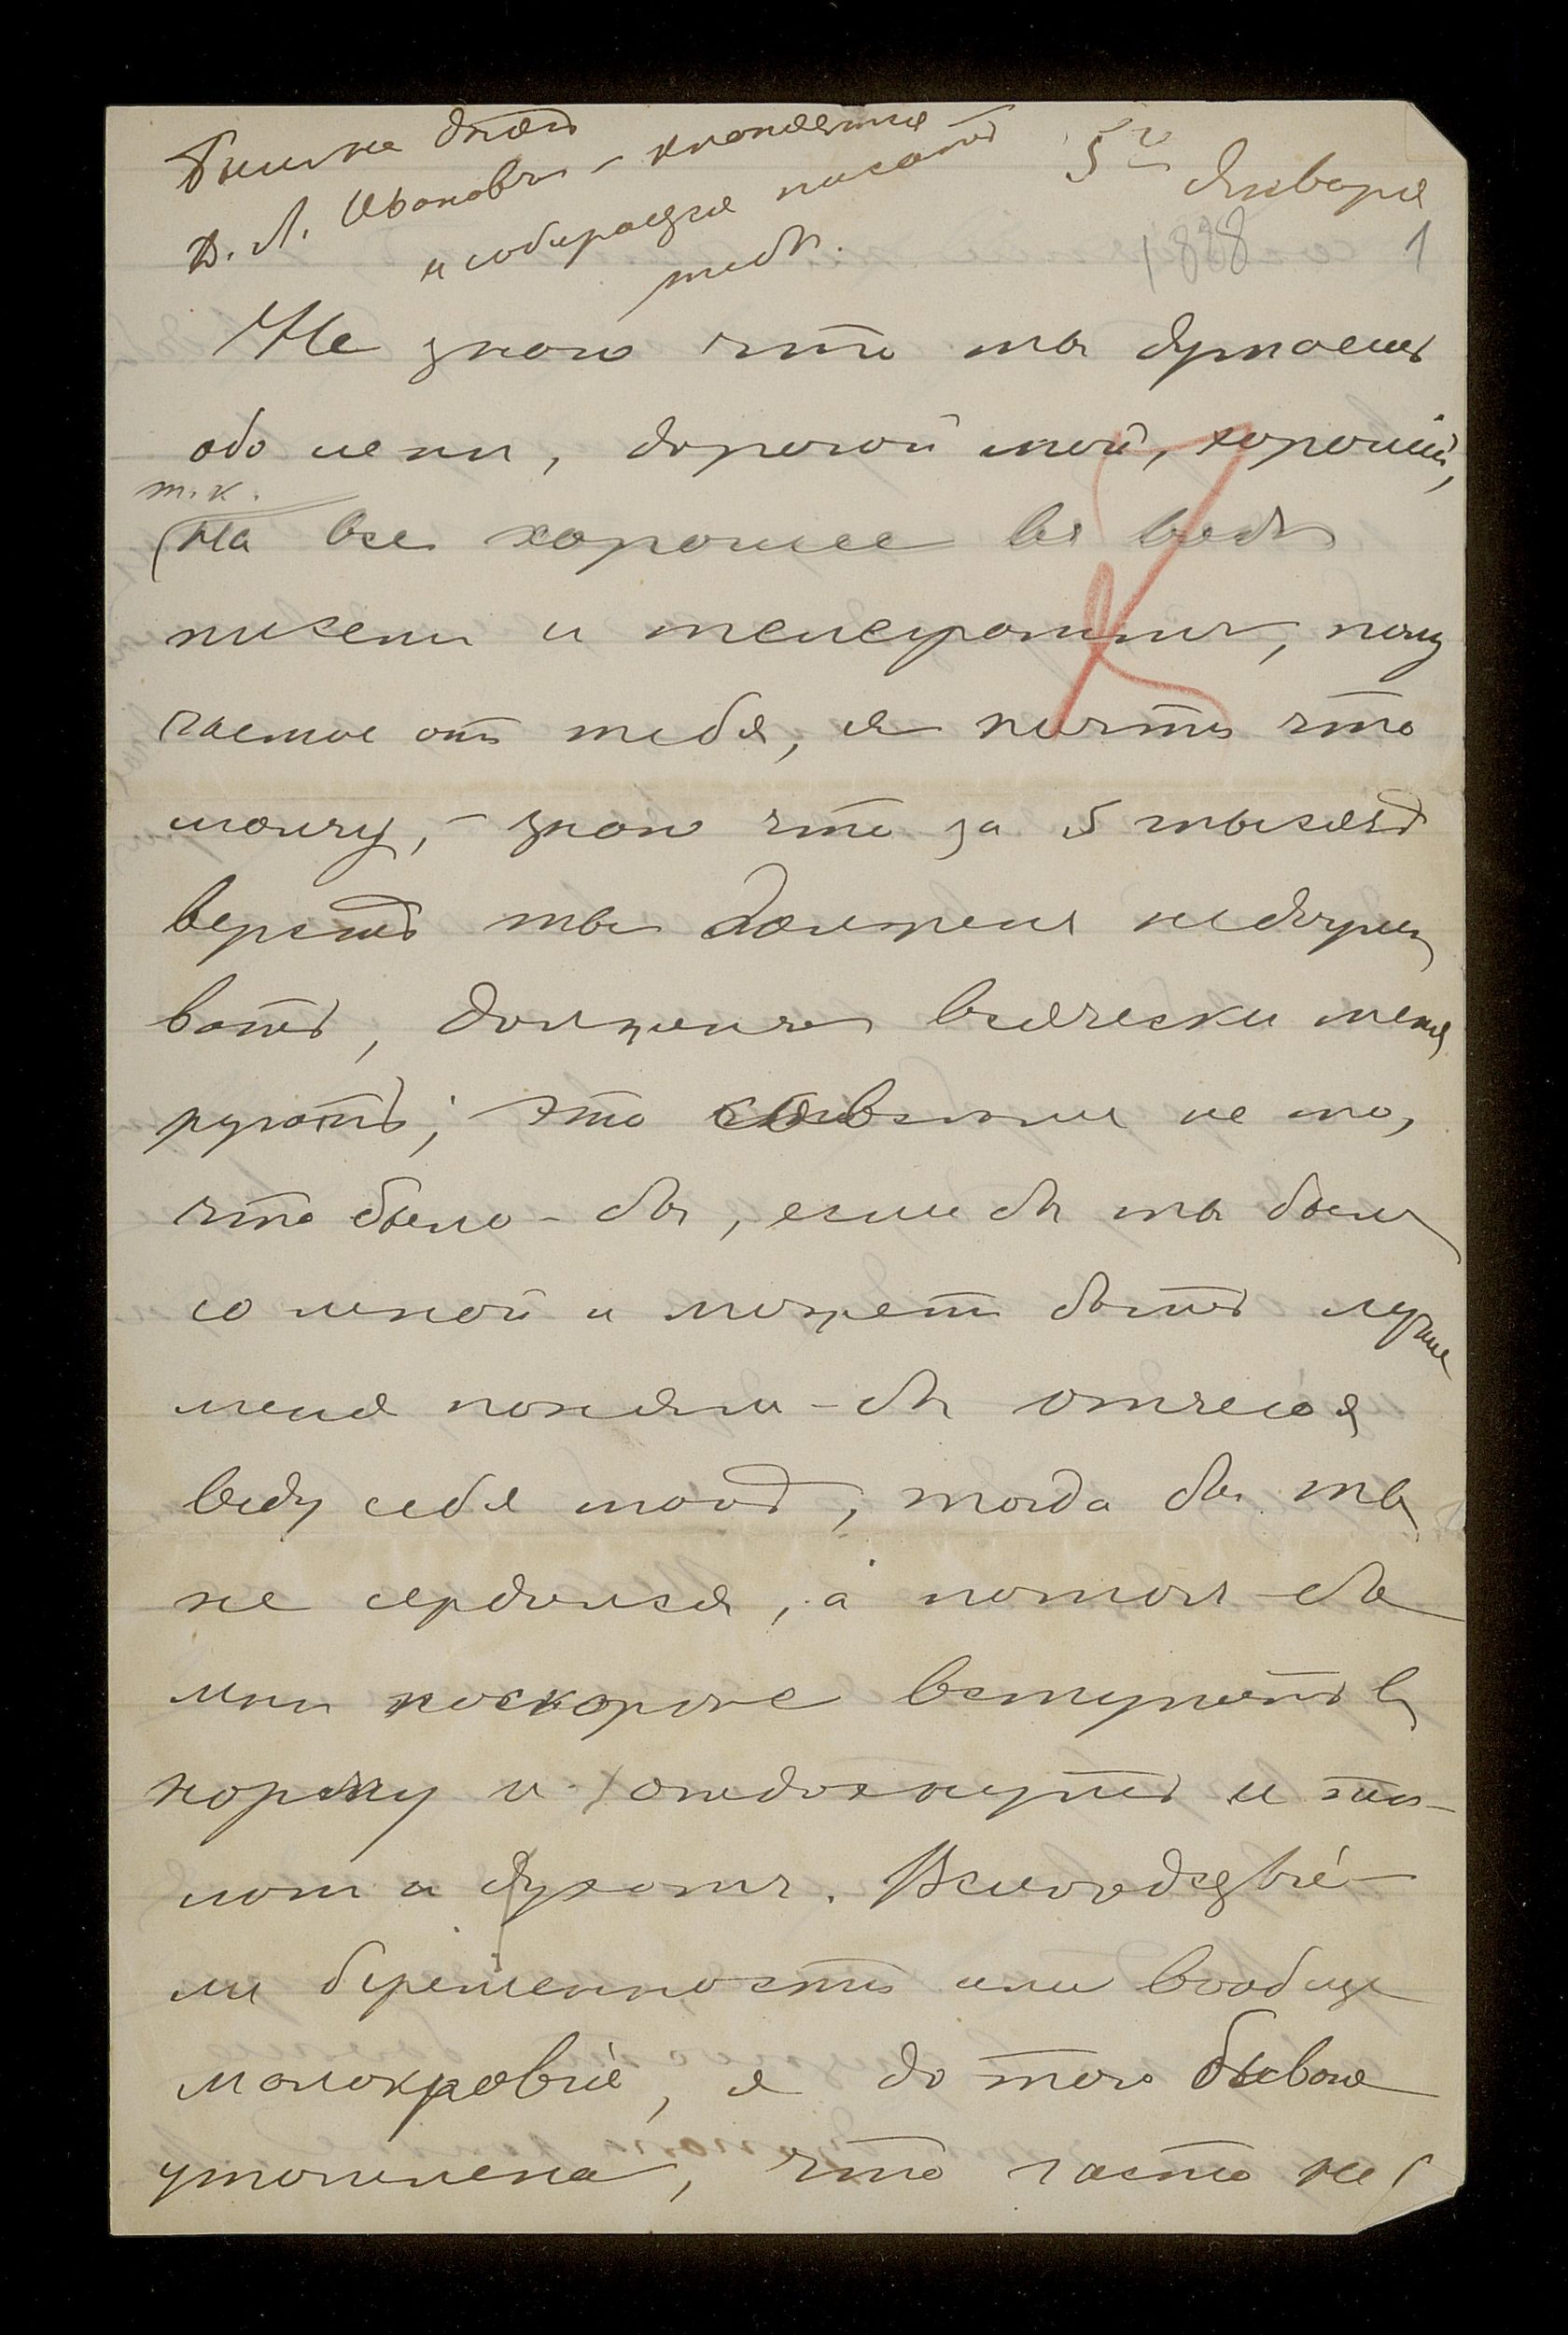 5го Января
1888 1
Д. Л. Ивановъ – кланяется
и собирается писать
тебѣ.
Не знаю что ты думаешь
обо мнѣ, дорогой мой, хорошій,
т. к.
(На все хорошее въ видѣ
писемъ и телеграммъ, полу
чаемое отъ тебя, я почти что
молчу, – знаю что за 5 тысячъ
верстъ ты долженъ
долженъ всячески меня
ругать; это совсѣмъ не то,
что было-бы, если бъ ты былъ
со мной и можетъ быть лучше
меня понялъ-бы отчего я
веду себя такъ, тогда бы ты
не сердился, а помогъ-бы
мнѣ поскорѣе вступить въ
норму и отдохнуть и тѣ-
ломъ и духомъ. Вслѣдствіе-
ли беременности или вообще
малокровія, я до того бываю
утомлена, что часто не